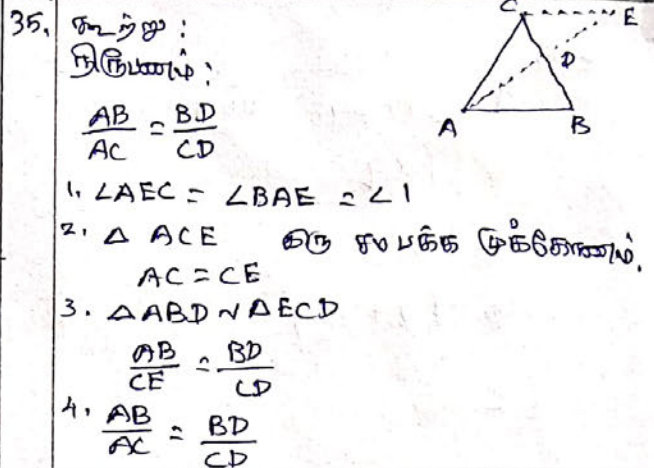 35. கூற்று :
நிரூபணம் :
AB/AC = BD/CD
1. ∠AEC = ∠BAE = ∠1
2. △ ACE ஒரு சமபக்க முக்கோணம்.
AC = CE
3. △ABD ~ △ECD
AB/CE = BD/CD
4. AB/AC = BD/CD
C E
D
A B